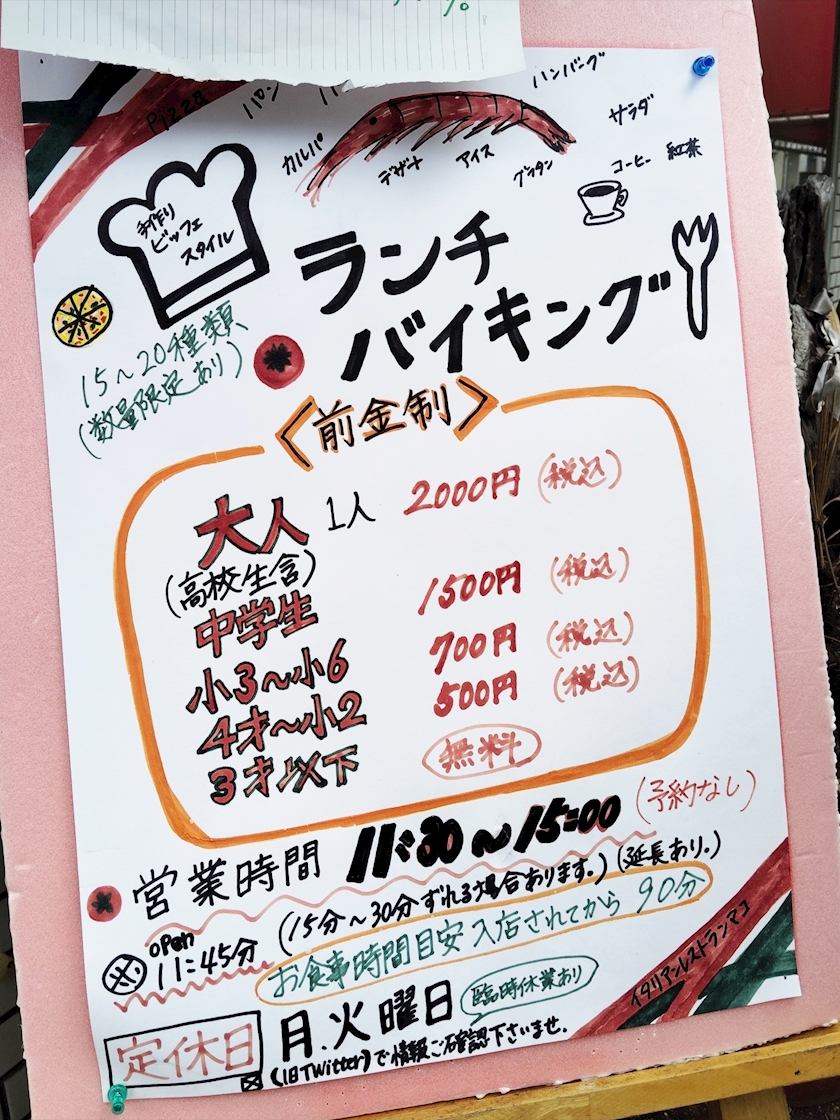 %
Pizza パン ハンバーグ
カルパ デザート アイス グラタン サラダ
コーヒー 紅茶
手作り
ビッフェ
スタイル
ランチ
バイキング
15～20種類
(数量限定あり)
〈前金制〉
大人 1人 2000円 (税込)
(高校生含)
中学生 1500円 (税込)
小3～小6 700円 (税込)
4才～小2 500円 (税込)
3才以下 無料
営業時間 11:30～15:00 (予約なし)
(15分～30分ずれる場合あります。)(延長あり。)
open
11:45分
お食事時間目安 入店されてから 90分
定休日 月.火曜日 臨時休業あり
X(旧Twitter)で情報ご確認下さいませ.
イタリアンレストランマコ